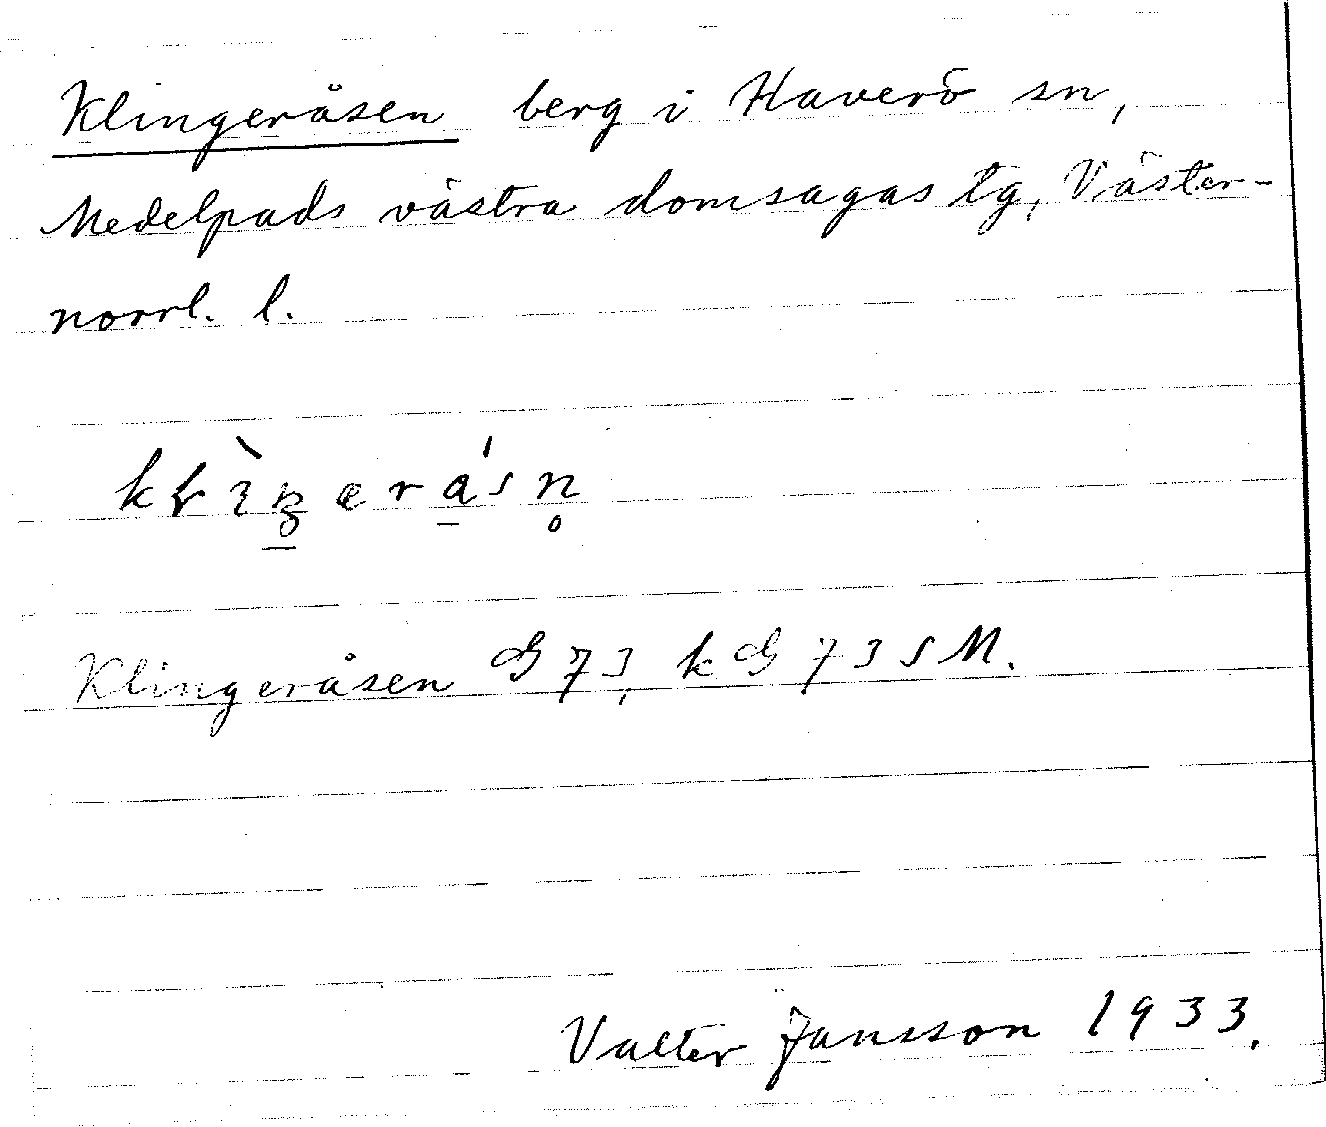 Klingeråsen berg i Haverö sn,
Medelpads västra domsagas tg, Väster-
norrl. l.
Klingeråsen G 73, k G 73 s M.
Valter Jansson 1933.